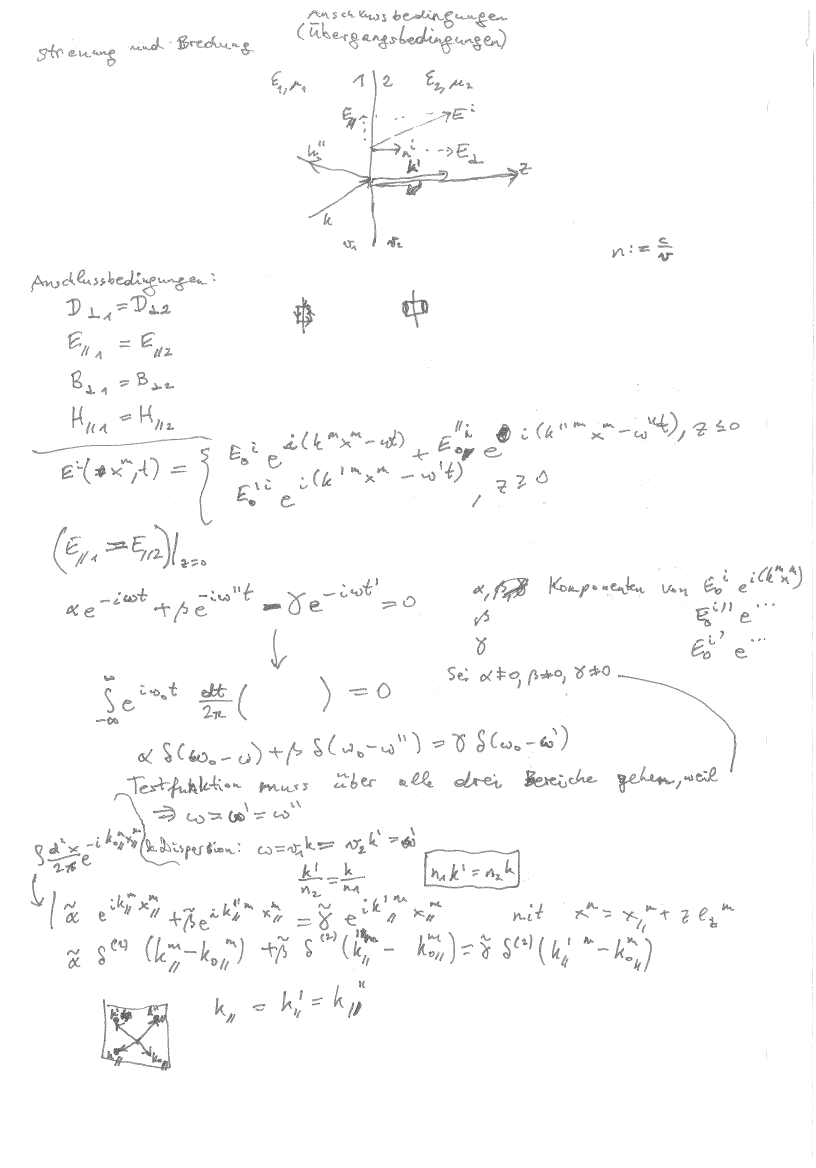 Anschlussbedingungen
(Übergangsbedingungen)
Streuung und Brechung
ε₁, μ₁ 1 | 2 ε₂, μ₂
E∥ Eⁱ
k'' nⁱ E⊥
k' z
k
v₁ v₂
n := c/v
Anschlussbedingungen:
D⊥1 = D⊥2
E∥1 = E∥2
B⊥1 = B⊥2
H∥1 = H∥2
Eⁱ(xᵐ,t) = { E₀ⁱ e^{i(kᵐxᵐ-ωt)} + E₀''ⁱ e^{i(k''ᵐxᵐ-ω''t)}, z ≤ 0
E₀'ⁱ e^{i(k'ᵐxᵐ - ω't)}, z ≥ 0
(E∥1 = E∥2)|z=0
αe^{-iωt} + βe^{-iω''t} - γe^{-iωt'} = 0
α, β, γ Komponenten von E₀ⁱ e^{i(kᵐxᵐ)}
β E₀ⁱ'' e^{...}
γ E₀ⁱ' e^{...}
Sei α≠0, β≠0, γ≠0
∫_{-∞}^{∞} e^{iω₀t} dt/2π ( ) = 0
α δ(ω₀-ω) + β δ(ω₀-ω'') = γ δ(ω₀-ω')
Testfunktion muss über alle drei Bereiche gehen, weil
⇒ ω = ω' = ω''
∫ d²x/2π e^{-ik₀∥ᵐx∥ᵐ} & Dispersion: ω = v₁k = v₂k' = ω'
k'/n₂ = k/n₁ n₁k' = n₂k
| α̃ e^{ik∥ᵐx∥ᵐ} + β̃ e^{ik∥''ᵐx∥ᵐ} = γ̃ e^{ik'∥ᵐx∥ᵐ} mit xᵐ = x∥ᵐ + z e_zᵐ
α̃ δ⁽²⁾(k∥ᵐ-k₀∥ᵐ) + β̃ δ⁽²⁾(k∥''ᵐ - k₀∥ᵐ) = γ̃ δ⁽²⁾(k∥'ᵐ-k₀∥ᵐ)
k∥ = k∥' = k∥''
k∥' k∥''
k∥ k₀∥